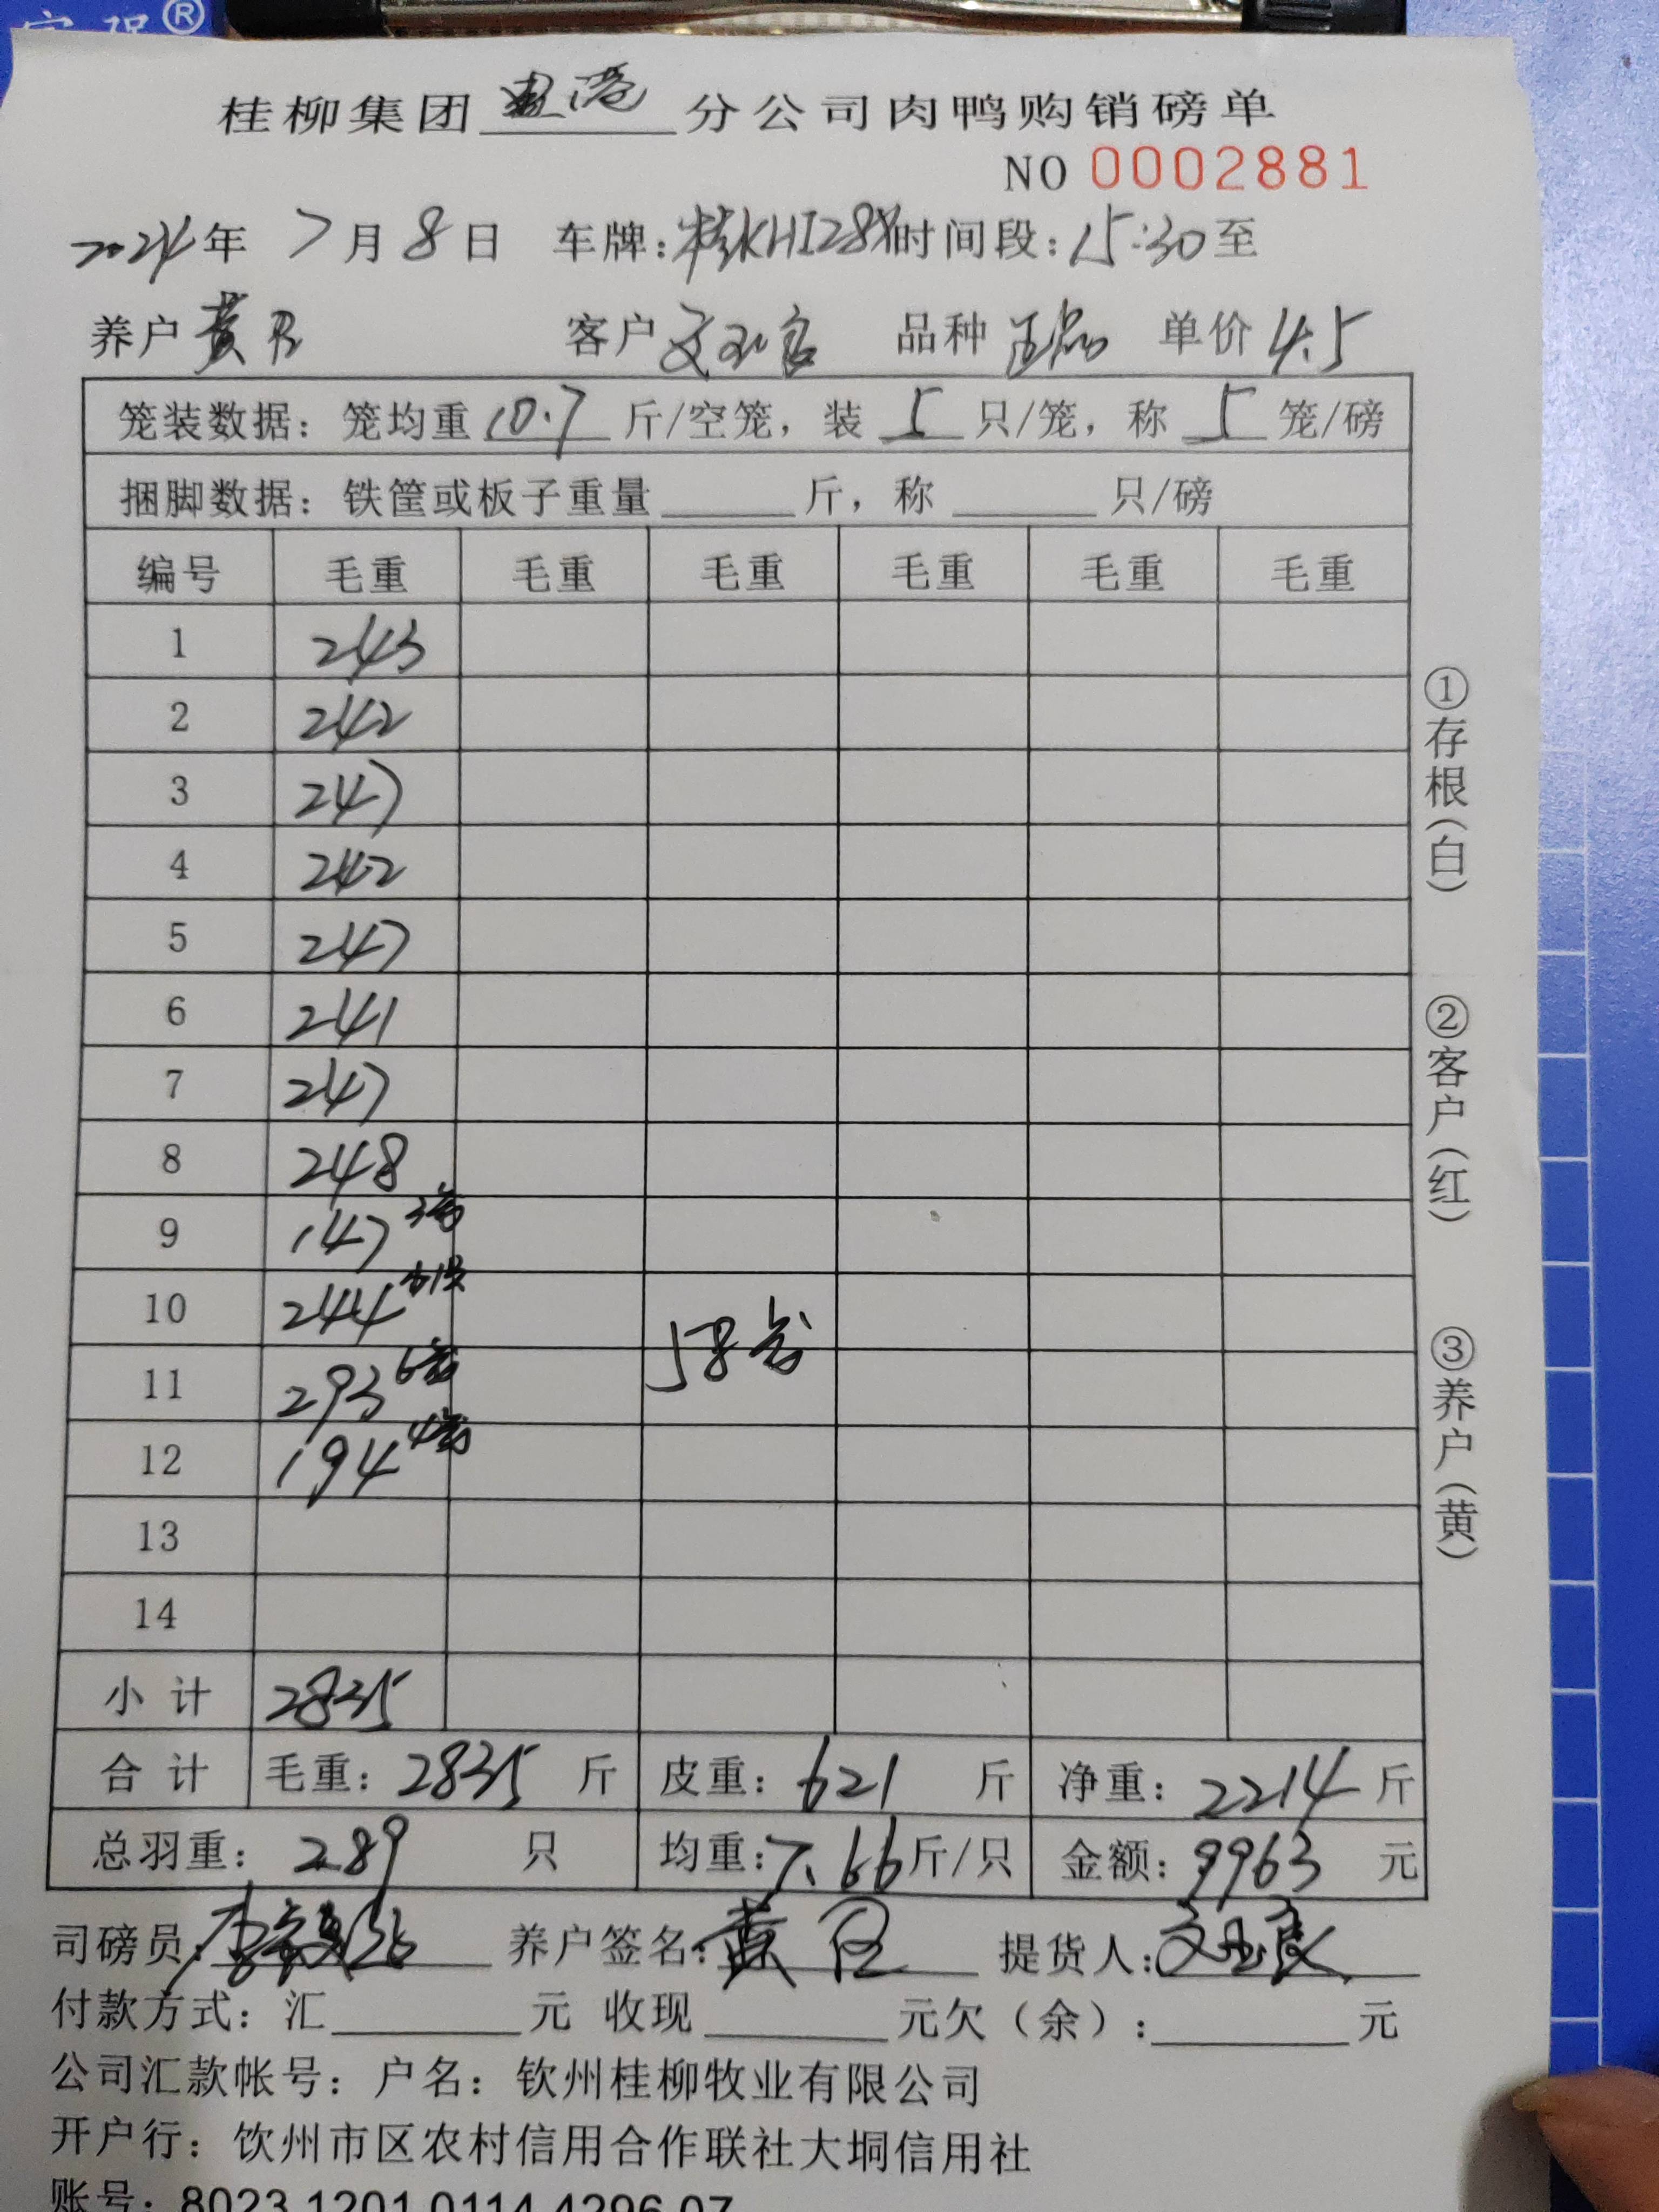 ®
桂柳集团 贵港 分公司肉鸭购销磅单
NO 0002881
2024年 7月8日 车牌:桂KH128X 时间段:15:30至
养户 黄 客户 文 品种 单价 4.5
笼装数据:笼均重 10.7 斤/空笼,装 5 只/笼,称 5 笼/磅
捆脚数据:铁筐或板子重量 斤,称 只/磅
编号 毛重 毛重 毛重 毛重 毛重 毛重
1 243
2 242
3 247
4 242
5 247
6 241
7 247
8 248
9 147 3
10 244
11 293 6 58
12 194 4
13
14
小计 2835
合计 毛重:2835 斤 皮重:621 斤 净重:2214 斤
总羽重:289 只 均重:7.66 斤/只 金额:9963 元
司磅员: 养户签名:黄 提货人:文
付款方式:汇 元 收现 元欠(余): 元
公司汇款帐号:户名:钦州桂柳牧业有限公司
开户行:钦州市区农村信用合作联社大垌信用社
账号:8023 1201 0114 4296 07
①存根(白)
②客户(红)
③养户(黄)